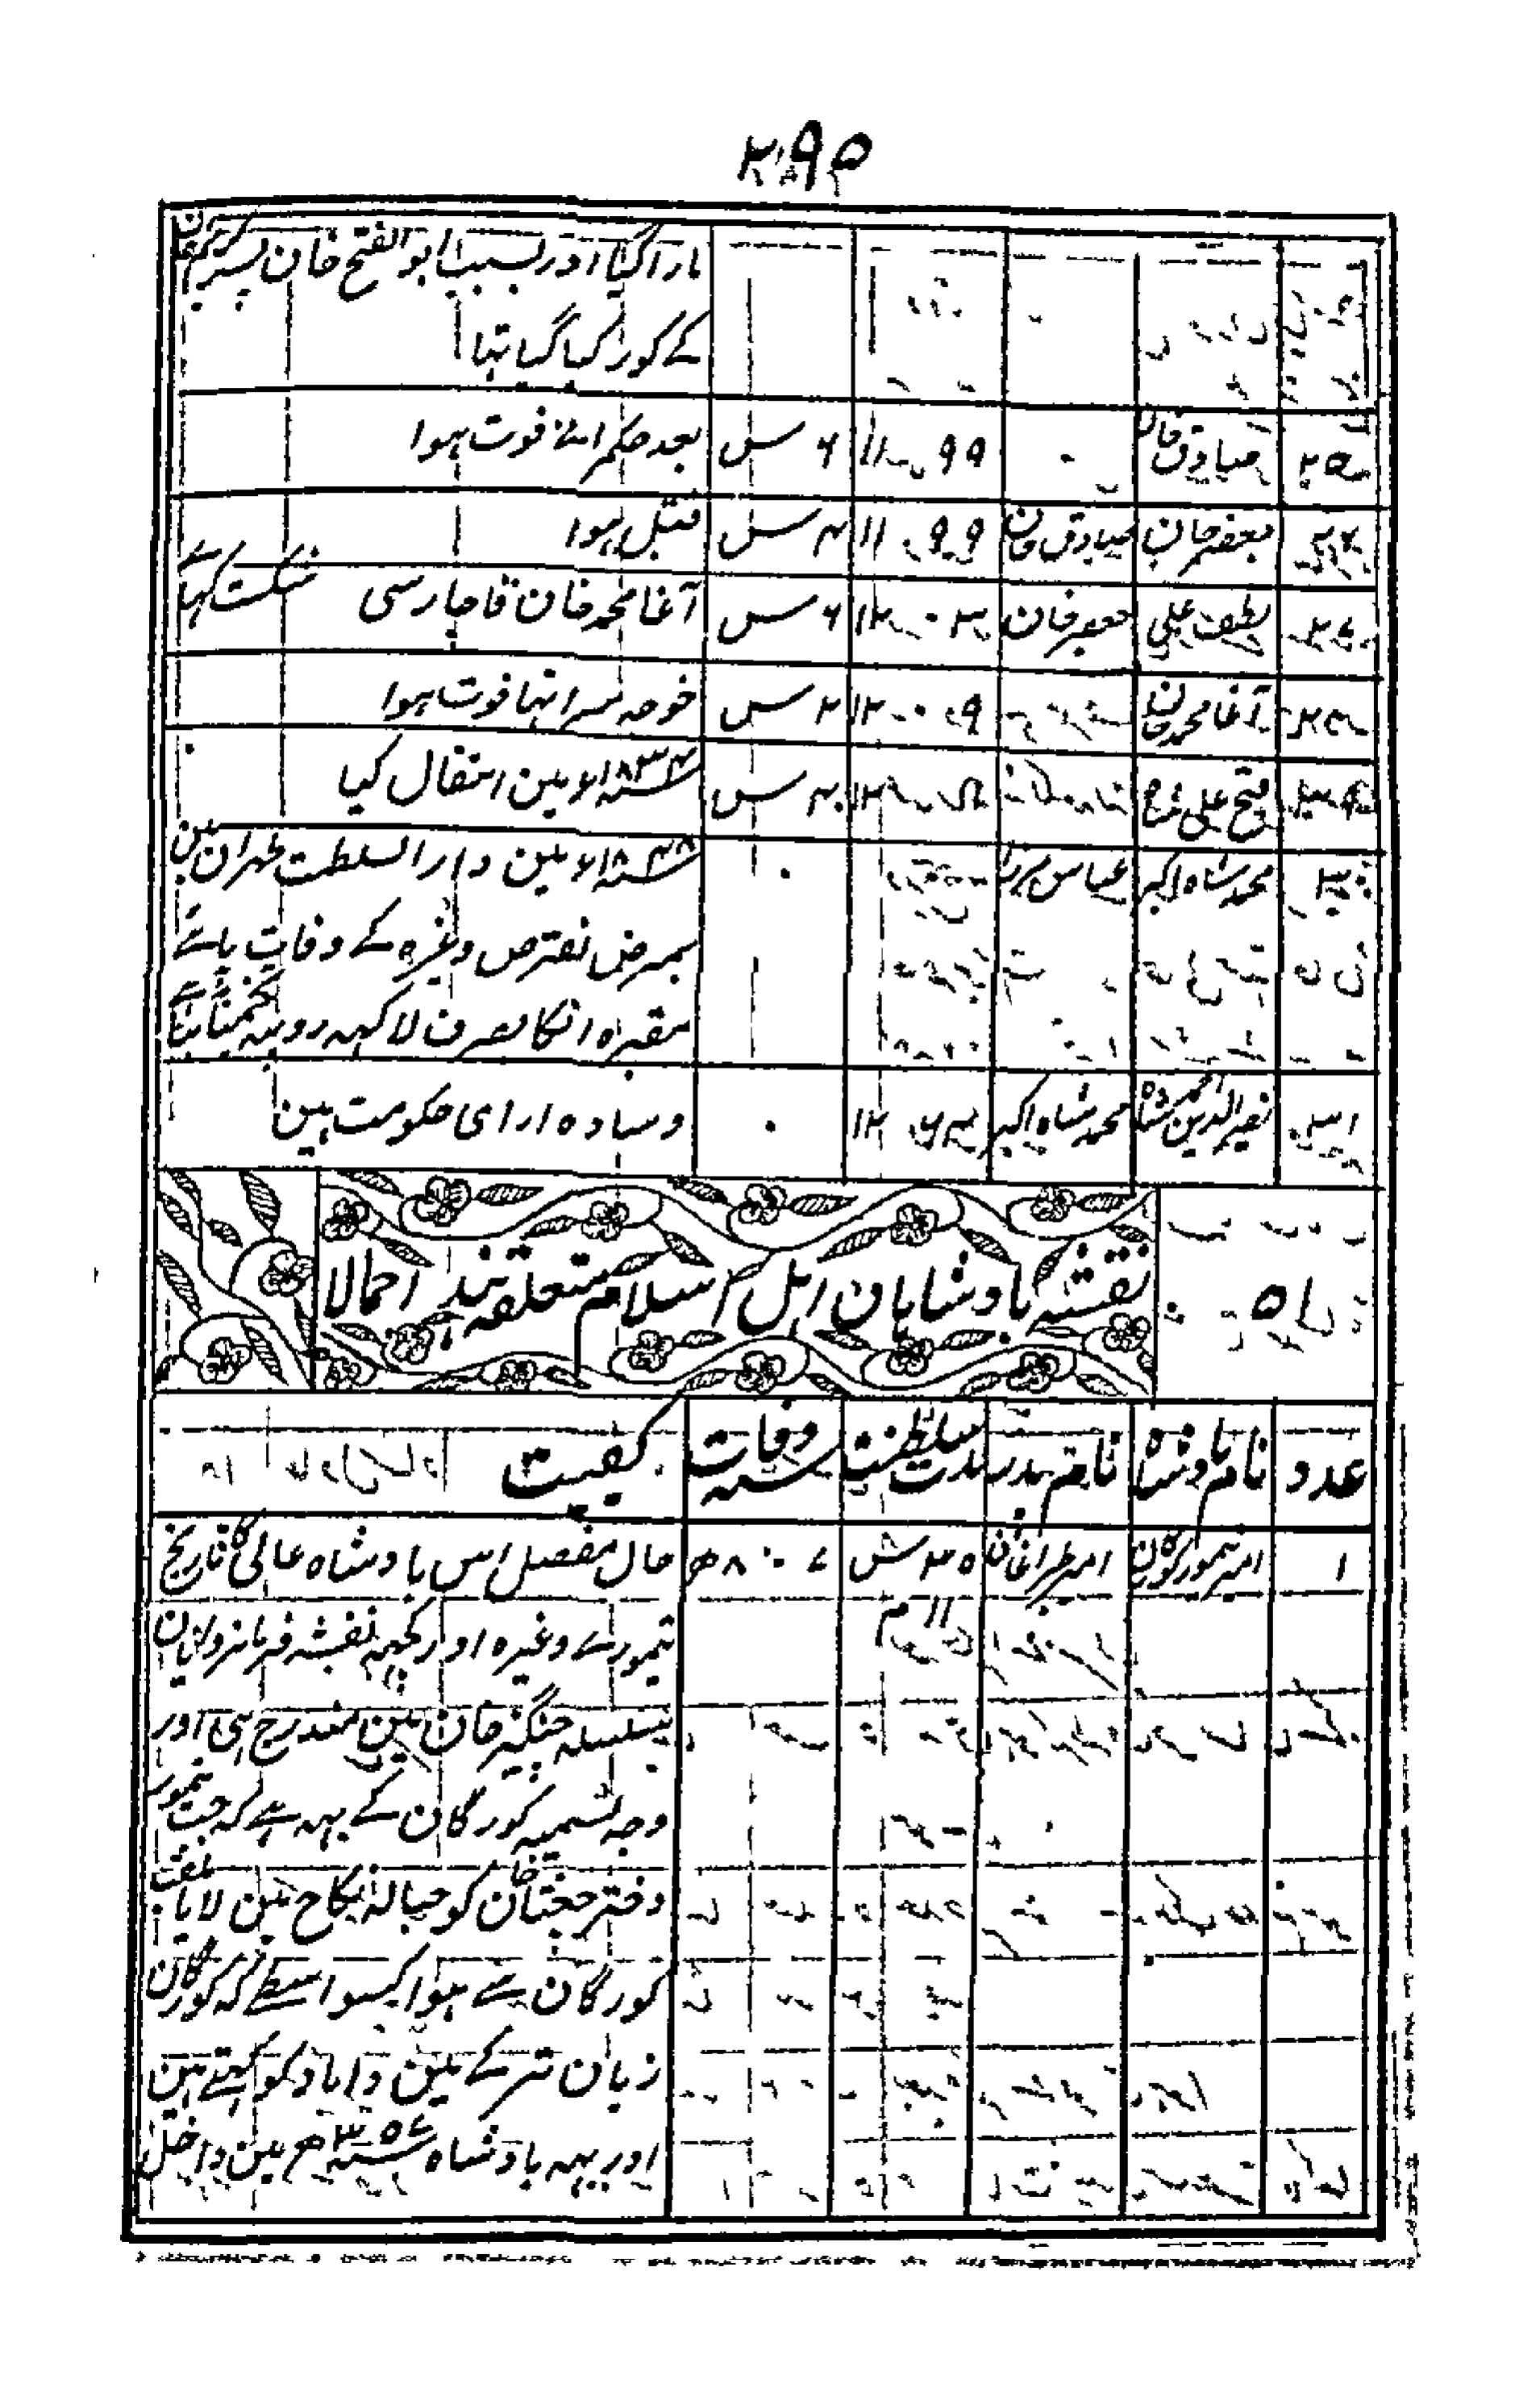 ۲۹۵
مارا گیا اور بسبب ابو الفتح خان پسر کریم خان
کے کور کیا گیا تہا
۲۵ صادق خان ۰ ۱۱۹۹ ۶ س بعد حکمرانے فوت ہوا
۲۶ جعفر خان صادق خان ۱۱۹۹ ۴ س قتل ہوا
۲۷ لطف علی جعفر خان ۱۲۰۳ ۶ س آغا محمد خان قاجار سی شکست کہائے
۲۸ آغا محمد خان ۱۲۰۹ ۲ س خوجہ سرا تہا فوت ہوا
۲۹ فتح علی شاہ ۴۰ س سنہ ۱۸۳۴ء مین انتقال کیا
۳۰ محمد شاہ اکبر عباس مرزا ۰ سنہ ۱۸۴۸ء مین دار السلطت طہران مین
بمرض نقرص وغیرہ کے وفات پائے
مقبرہ انکا بصرف لاکہہ روپیہ تخمیناً بنا ہے
۳۱ نصیر الدین احمد شاہ محمد شاہ اکبر ۱۲۶۴ ۰ وسادہ ارای حکومت ہین
نقشہ بادشاہان اہل اسلام متعلقہ ہند اجمالا
عدد نام بادشاہ نام پدر مدت سلطنت سنہ وفات کیفیت
۱ امیر تیمور کورکان امیر طراغان ۳۵ ش ۸۰۷ھ حال مفصل اس بادشاہ عالی کا تاریخ
۱۱ م تیمورے وغیرہ اور کچہہ نقشہ فرمانروایان
بسلسلہ چنگیز خان مین مندرج ہی اور
وجہ تسمیہ کورگان کے یہہ ہے کہ جب تیمور
دختر چغتا خان کو حبالہ نکاح مین لایا ملقب
کورگان سے ہوا کیسواسطے کہ کورگان
زبان ترکے مین داماد کو کہتے ہین
اور یہہ بادشاہ مین داخل